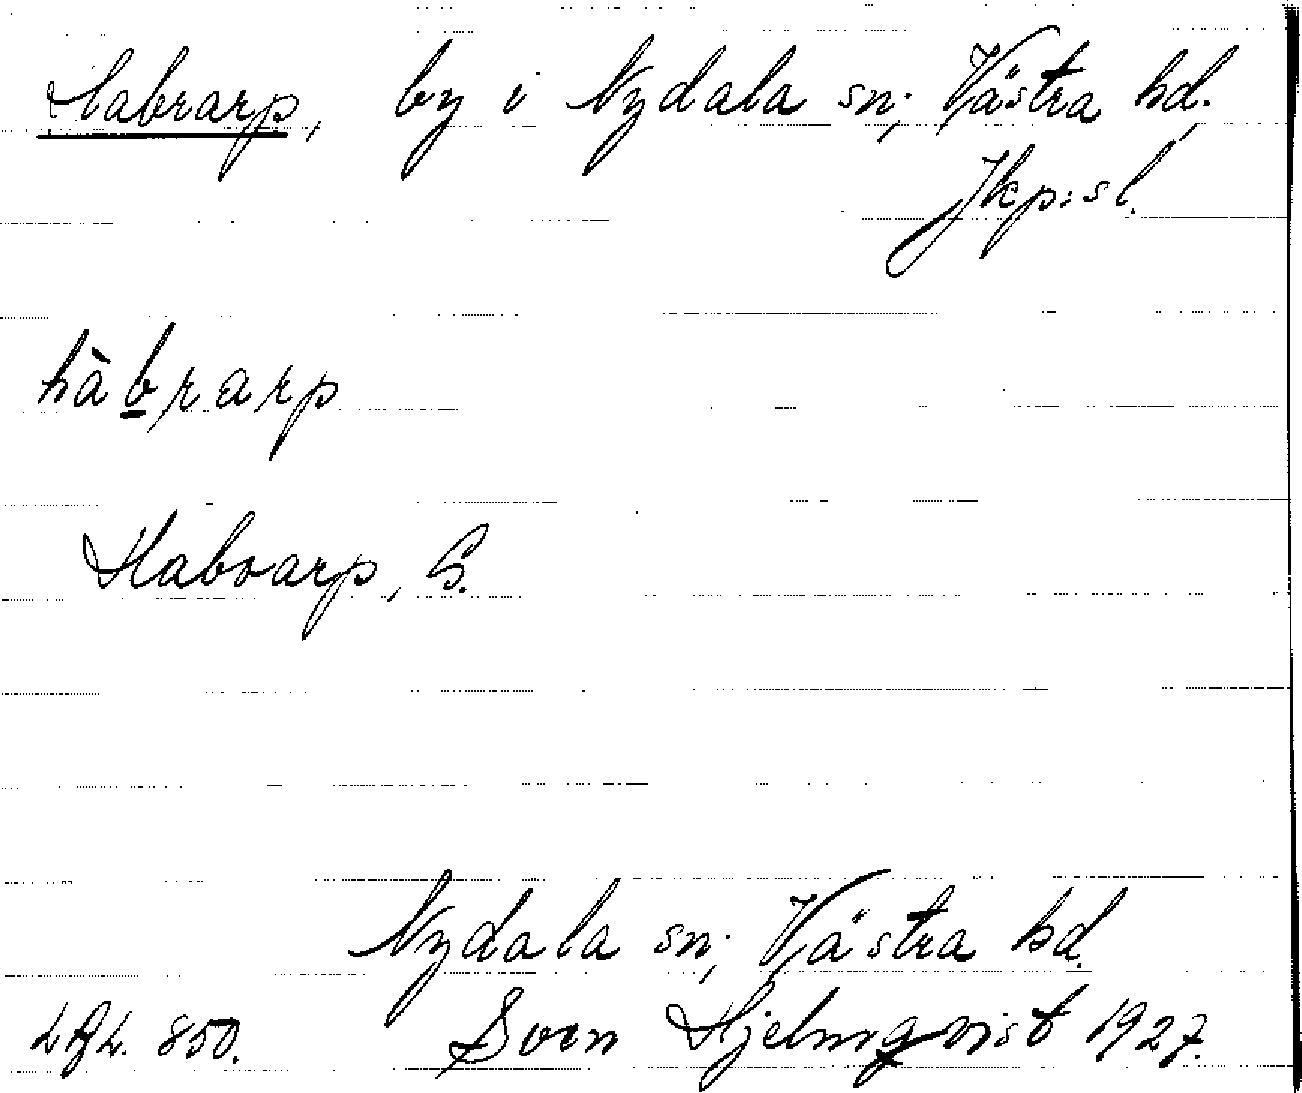 Habrarp, by i Nydala sn; Västra hd.,
Jkp:s l.
hàbrarp
Habrarp, G.
Nydala sn; Västra hd.
850. Sven Hjelmqvist 1927.